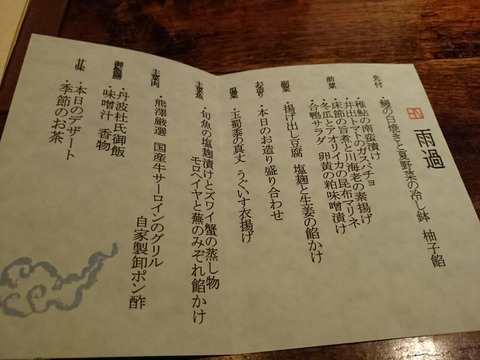 雨過
先付
鰻の白焼きと夏野菜の冷し鉢 柚子餡
前菜
・稚鮎の南蛮漬け
・井出トマトのガスパチョ
・床節の旨煮と川海老の素揚げ
・冬瓜とアオリイカの昆布マリネ
・合鴨サラダ 卵黄の粕味噌漬け
・揚げ出し豆腐 塩麹と生姜の餡かけ
お造り
・本日のお造り盛り合わせ
・玉蜀黍の真丈 うぐいす衣揚げ
・旬魚の塩麹漬けとズワイ蟹の蒸し物
モロヘイヤと蕪のみぞれ餡かけ
・熊澤厳選 国産牛サーロインのグリル
自家製卸ポン酢
・丹波杜氏御飯
・味噌汁 香物
甘味
・本日のデザート
・季節のお茶